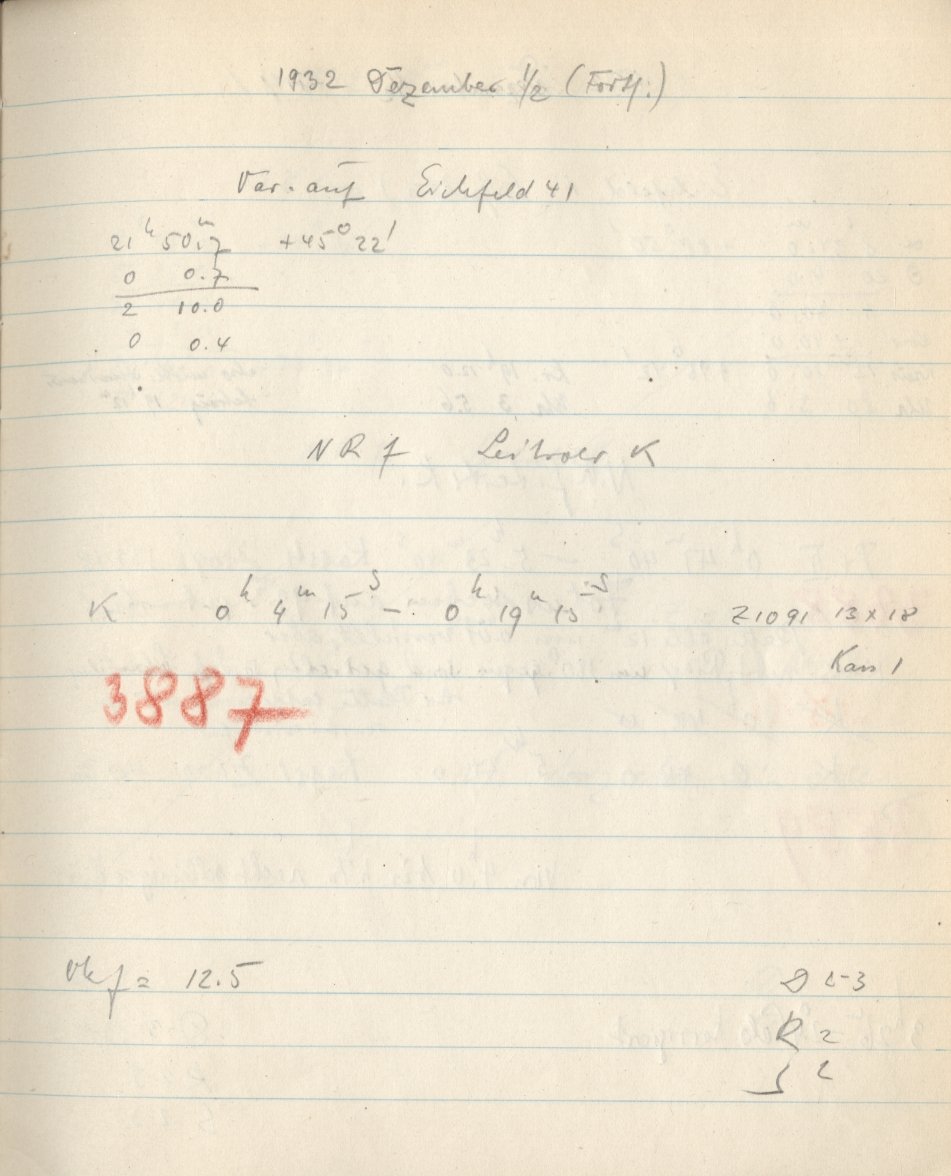 1932 Dezember 1/2 (Forts.)
Var. auf Eichfeld 41
21h 50m,7 +45° 22'
0 0.7
2 10.0
0 0.4
NR f Leitrohr K
K 0h 4m 15s – 0h 19m 15s Z1091 13 x 18
Kass 1
3887
f = 12.5
D 2-3
R 2
S 2